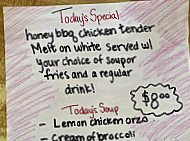 Today's Special
honey bbq chicken tender
Melt on white served w/
your choice of soup or
fries and a regular
drink!
$8.00
Today's Soup
- Lemon chicken orzo
- Cream of broccoli